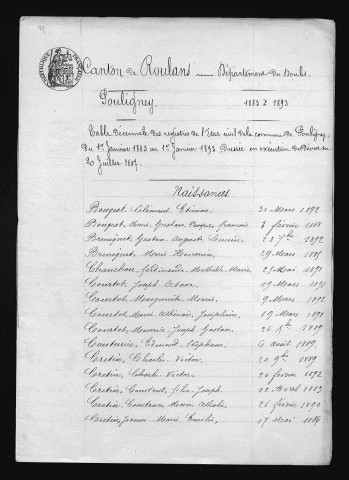 Canton de Roulans — Département du Doubs.
Pouligney. 1883 à 1893
Table Décennale des registres de l'Etat civil de la commune de Pouligney,
du 1er Janvier 1883 au 1er Janvier 1893 Dressée en exécution du Décret du
20 Juillet 1807.
Naissances
Bougeot Clément Etienne 31 Mars 1892
Bougeot Marie Gustan Prosper français 3 février 1888
Breniguet Gaston August 28 7bre 1892
Breniguet Marie 29 Mars 1885
Ferdinande Mathilde Marie 23 Mai 1891
Courtot Joseph 19 Mars 1891
Courtot Marguerite Marie 9 Mars 1892
Courtot Marie Athénaïs Joséphine 19 Mars 1891
Courtot Maurice Joseph Gaston 26 1889
Couturier Edmond Stéphane 6 août 1889
Cretin Charle Victor 20 9bre 1889
Cretin Charle Victor 20 février 1892
Cretin Constant félix Joseph 12 avril 1883
Cretin Constance Marie Athalie 26 février 1890
Cretin Jeanne Marie Emilie 17 Mai 1886